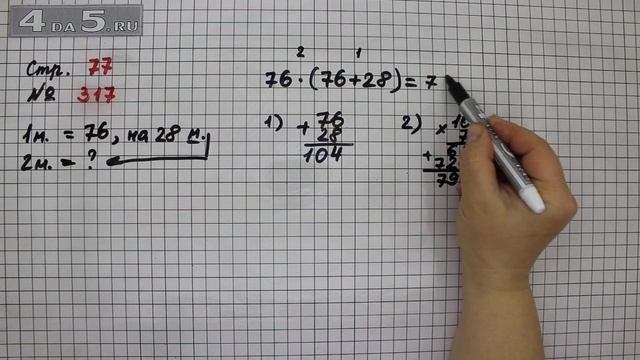 4DA5.RU
Стр. 77
№ 317
1м. = 76, на 28 м.
2м. = ?
2 1
76 · (76 + 28) = 7
1) 76
+ 28
104
2) 10
× 7
6
+ 72
79